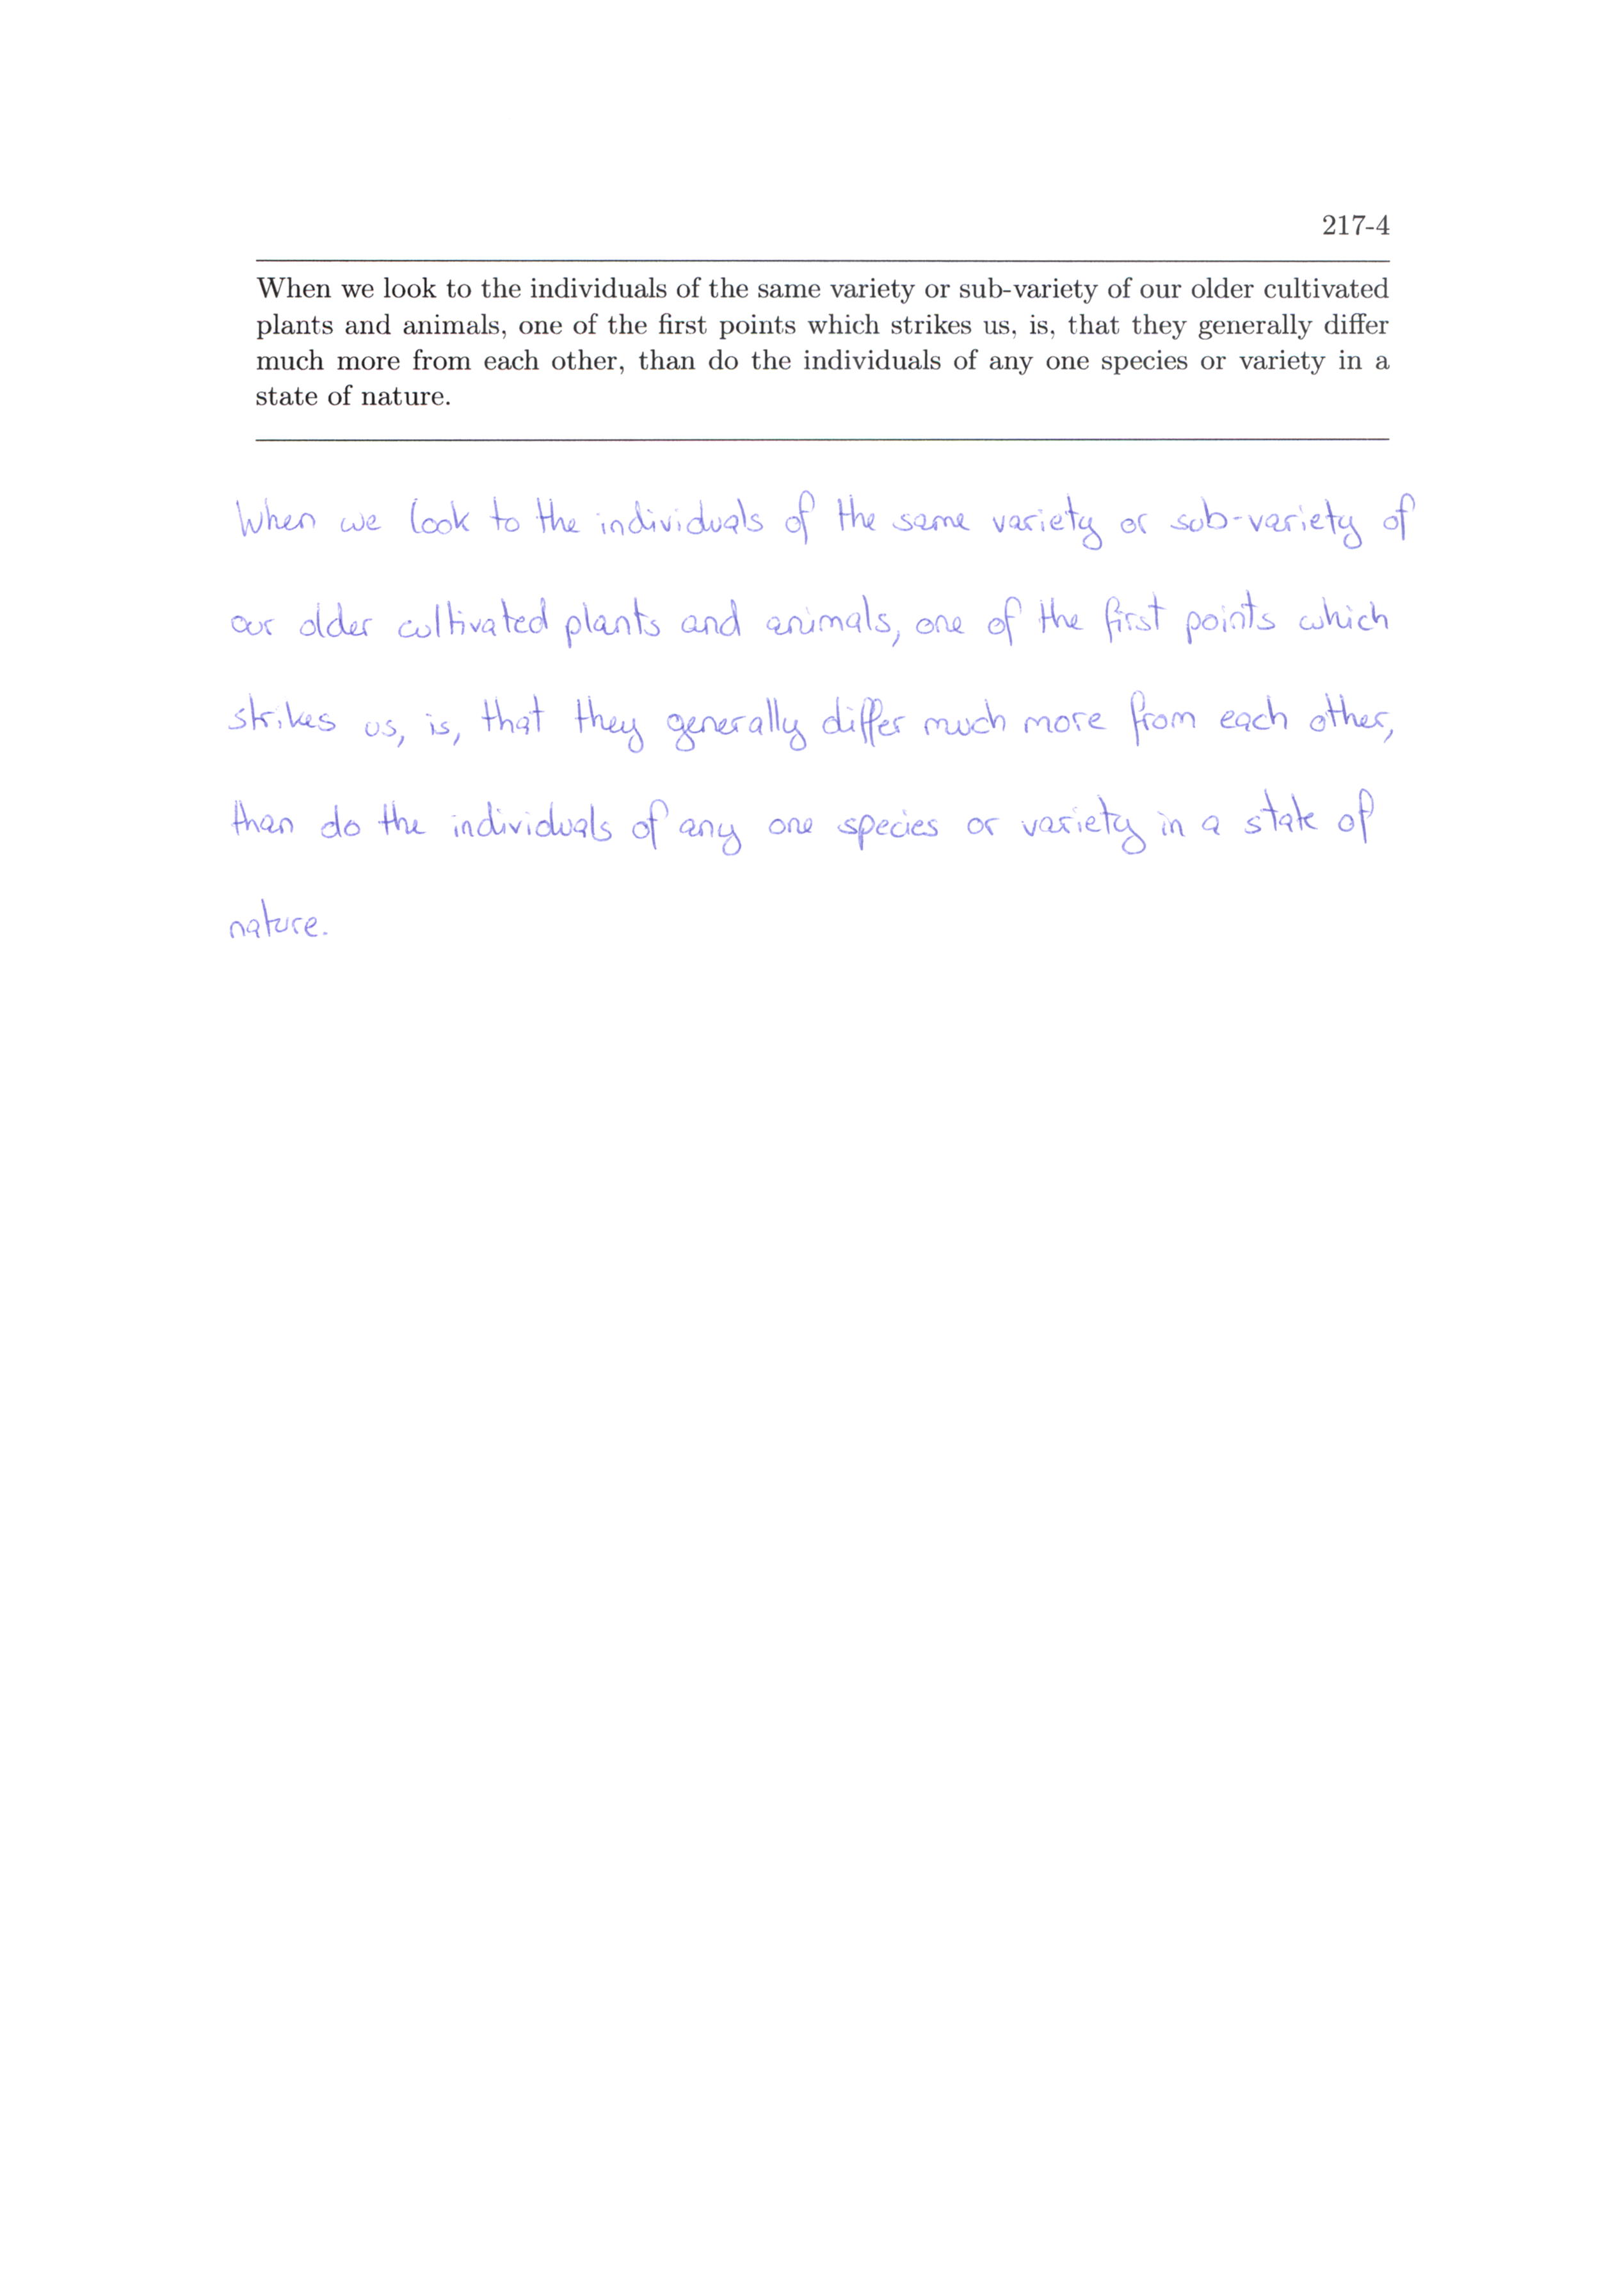 217-4
When we look to the individuals of the same variety or sub-variety of our older cultivated
plants and animals, one of the first points which strikes us, is, that they generally differ
much more from each other, than do the individuals of any one species or variety in a
state of nature.
When we look to the individuals of the same variety or sub-variety of
our older cultivated plants and animals, one of the first points which
strikes us, is, that they generally differ much more from each other,
than do the individuals of any one species or variety in a state of
nature.